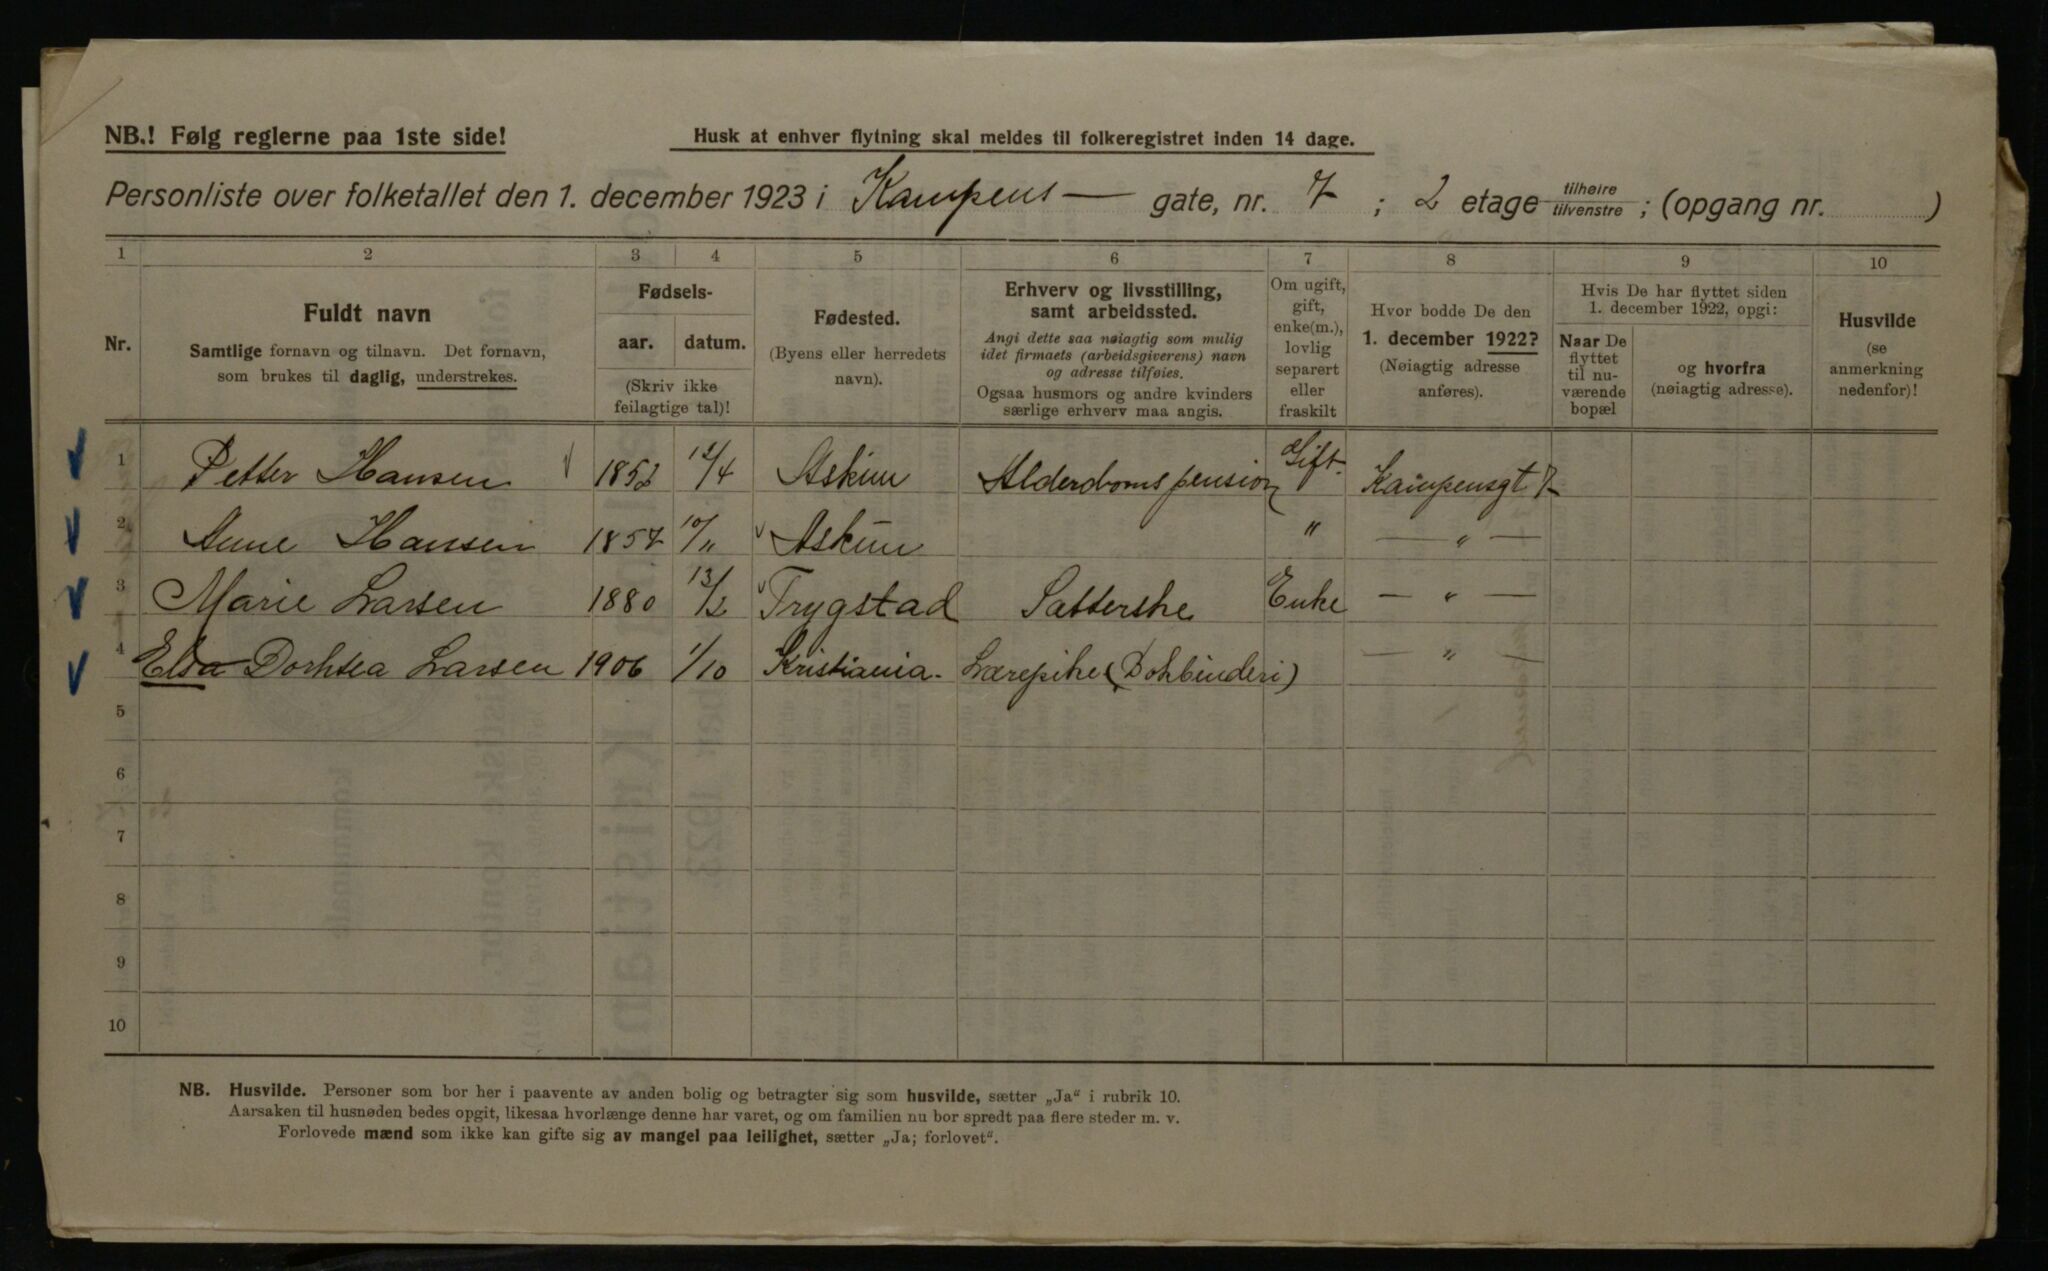 NB.! Følg reglerne paa 1ste side!
Husk at enhver flytning skal meldes til folkeregistret inden 14 dage.
Personliste over folketallet den 1. december 1923 i Kampens — gate, nr. 7 ; 2 etage tilhøire tilvenstre ; (opgang nr. )
1 2 3 4 5 6 7 8 9 10
Nr.
Fuldt navn
Samtlige fornavn og tilnavn. Det fornavn,
som brukes til daglig, understrekes.
Fødsels-
aar. datum.
(Skriv ikke
feilagtige tal)!
Fødested.
(Byens eller herredets
navn).
Erhverv og livsstilling,
samt arbeidssted.
Angi dette saa nøiagtig som mulig
idet firmaets (arbeidsgiverens) navn
og adresse tilføies.
Ogsaa husmors og andre kvinders
særlige erhverv maa angis.
Om ugift,
gift,
enke(m.),
lovlig
separert
eller
fraskilt
Hvor bodde De den
1. december 1922?
(Nøiagtig adresse
anføres).
Hvis De har flyttet siden
1. december 1922, opgi:
Naar De
flyttet
til nu-
værende
bopæl
og hvorfra
(nøiagtig adresse).
Husvilde
(se
anmerkning
nedenfor)!
1 Petter Hansen 1852 12/4 Askim Alderdomspension Gift. Kampensgt 7
2 Anne Hansen 1857 10/11 Askim " — " —
3 Marie Larsen 1880 13/2 Trygstad Sætterske Enke — " —
4 Elsa Dorhtea Larsen 1906 1/10 Kristiania. Lærepike (Bokbinderi) — " —
5
6
7
8
9
10
NB. Husvilde. Personer som bor her i paavente av anden bolig og betragter sig som husvilde, sætter „Ja" i rubrik 10.
Aarsaken til husnøden bedes opgit, likesaa hvorlænge denne har varet, og om familien nu bor spredt paa flere steder m. v.
Forlovede mænd som ikke kan gifte sig av mangel paa leilighet, sætter „Ja; forlovet".